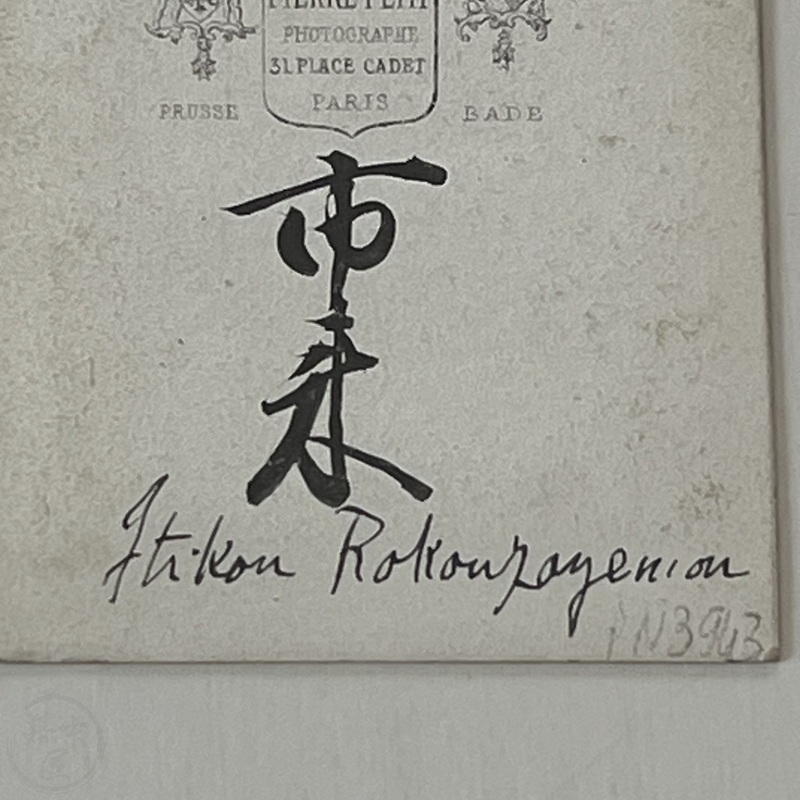 PIERRE PETIT
PHOTOGRAPHE
31 PLACE CADET
PARIS
PRUSSE BADE
市
来
Itikou Rokouzayemon
PN3943